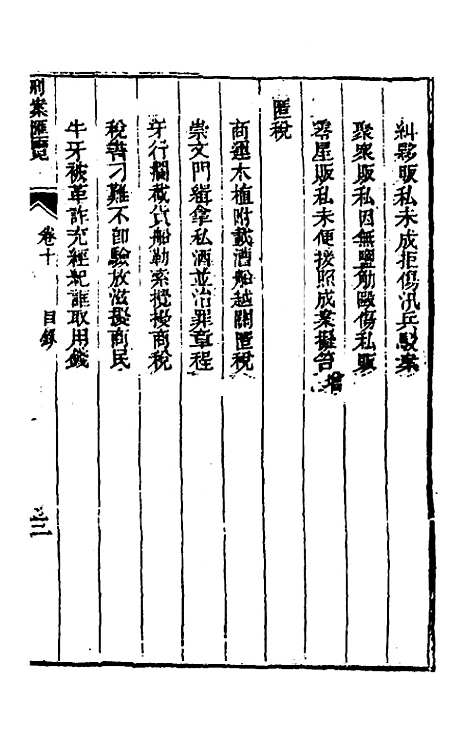 糾夥販私未成拒傷汛兵駁案
聚衆販私因無鹽觔毆傷私販
零星販私未便援照成案擬笞
匿稅
商運木植附載酒船越關匿稅
崇文門緝拿私酒並治罪章程
牙行攔截貨船勒索攬擾商稅
稅書刁難不卽驗放滋擬商民
牛牙被革詐充經紀誆取用錢
刑案匯覽
卷十
目錄
三